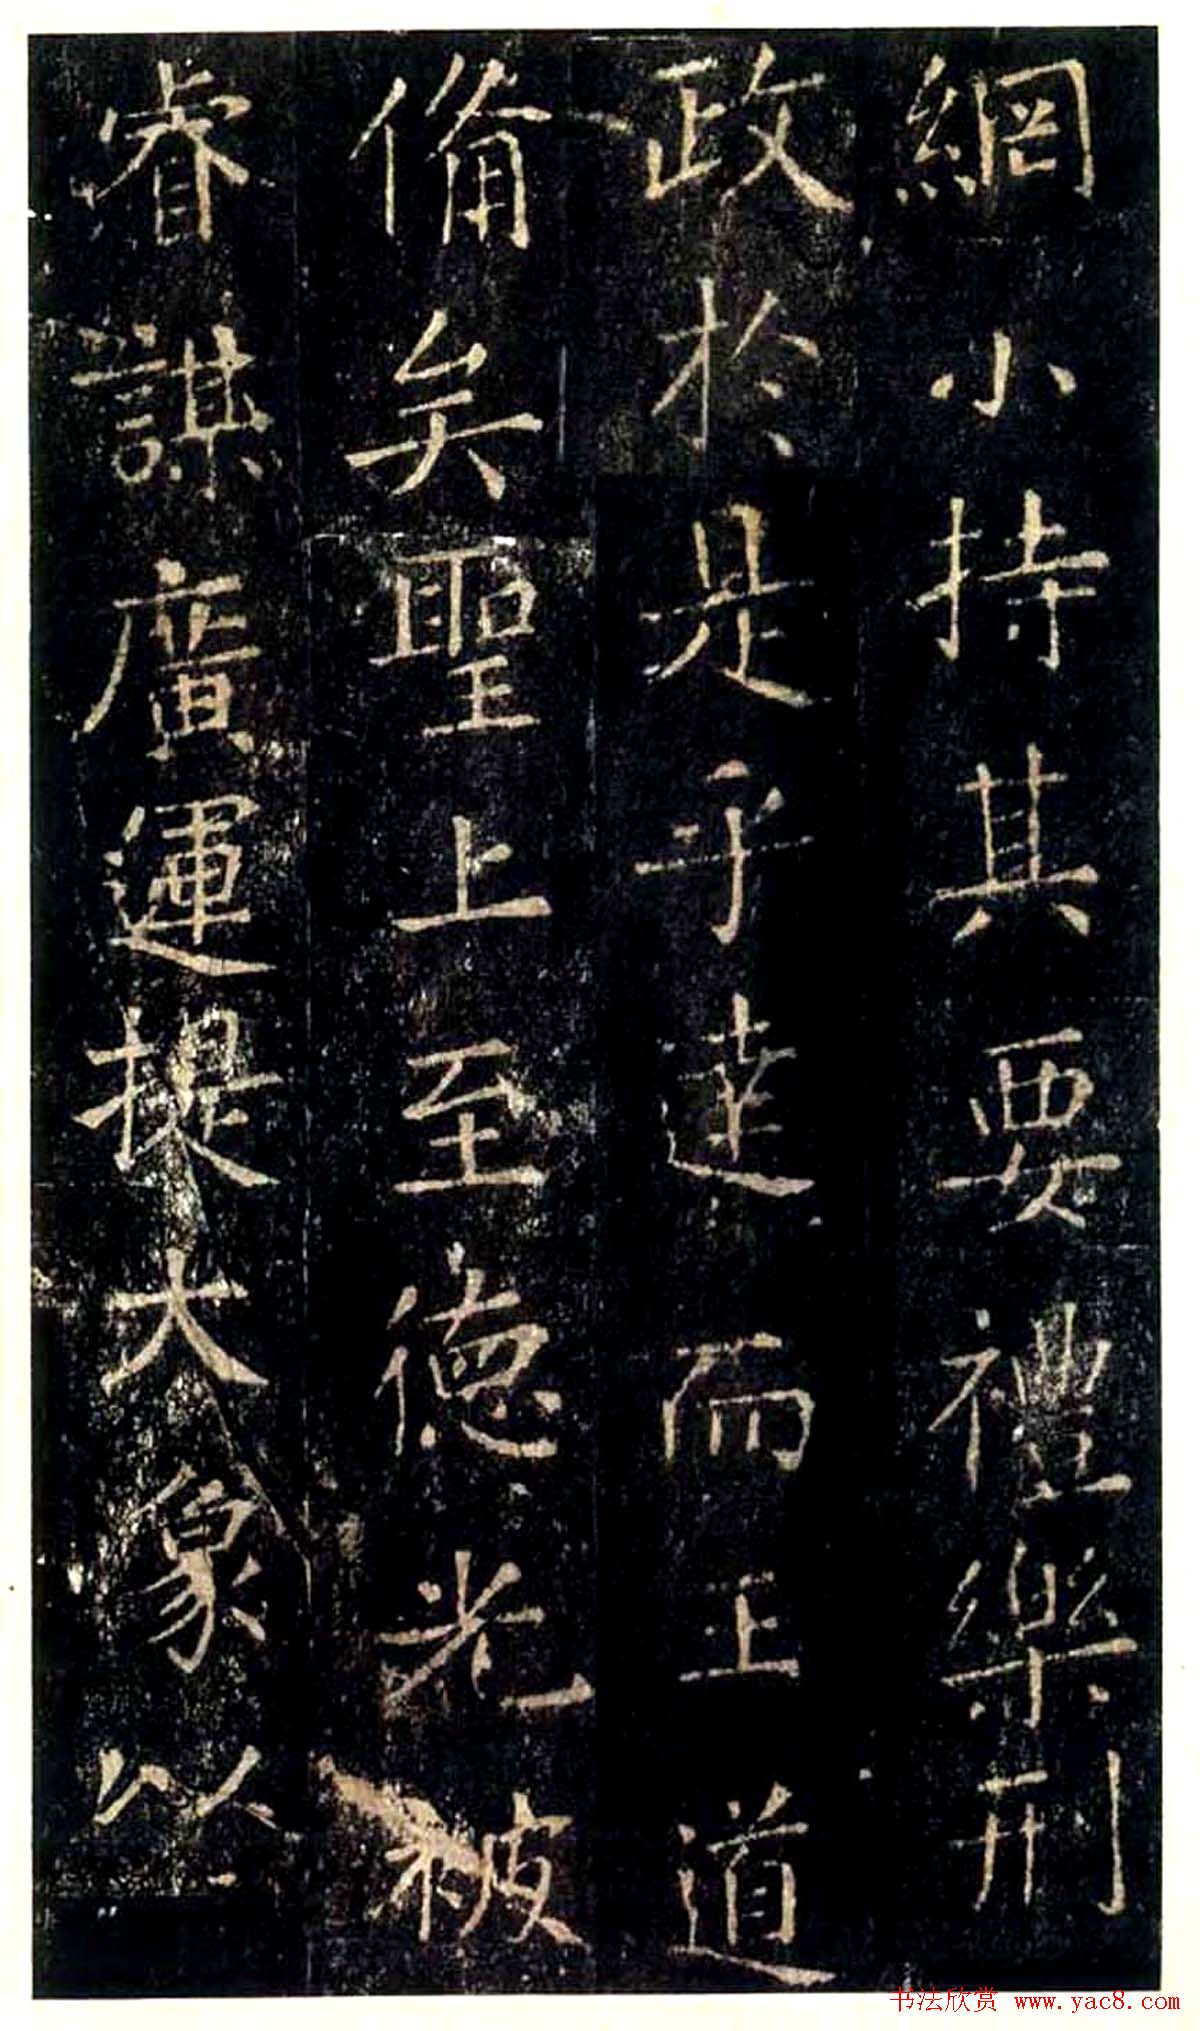 網小持其要禮樂刑
政於是乎達而王道
俻矣聖上至德光被
睿謀廣運提大象以
书法欣赏 www.yac8.com